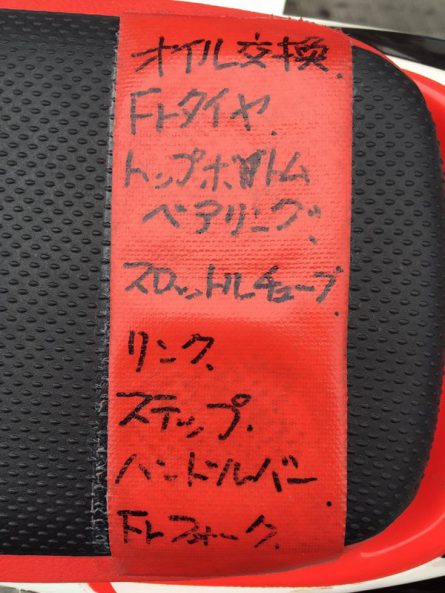 オイル交換.
Frタイヤ.
トップボトム
ベアリング.
スロットルチューブ.
リンク.
ステップ.
ハンドルバー.
Frフォーク.